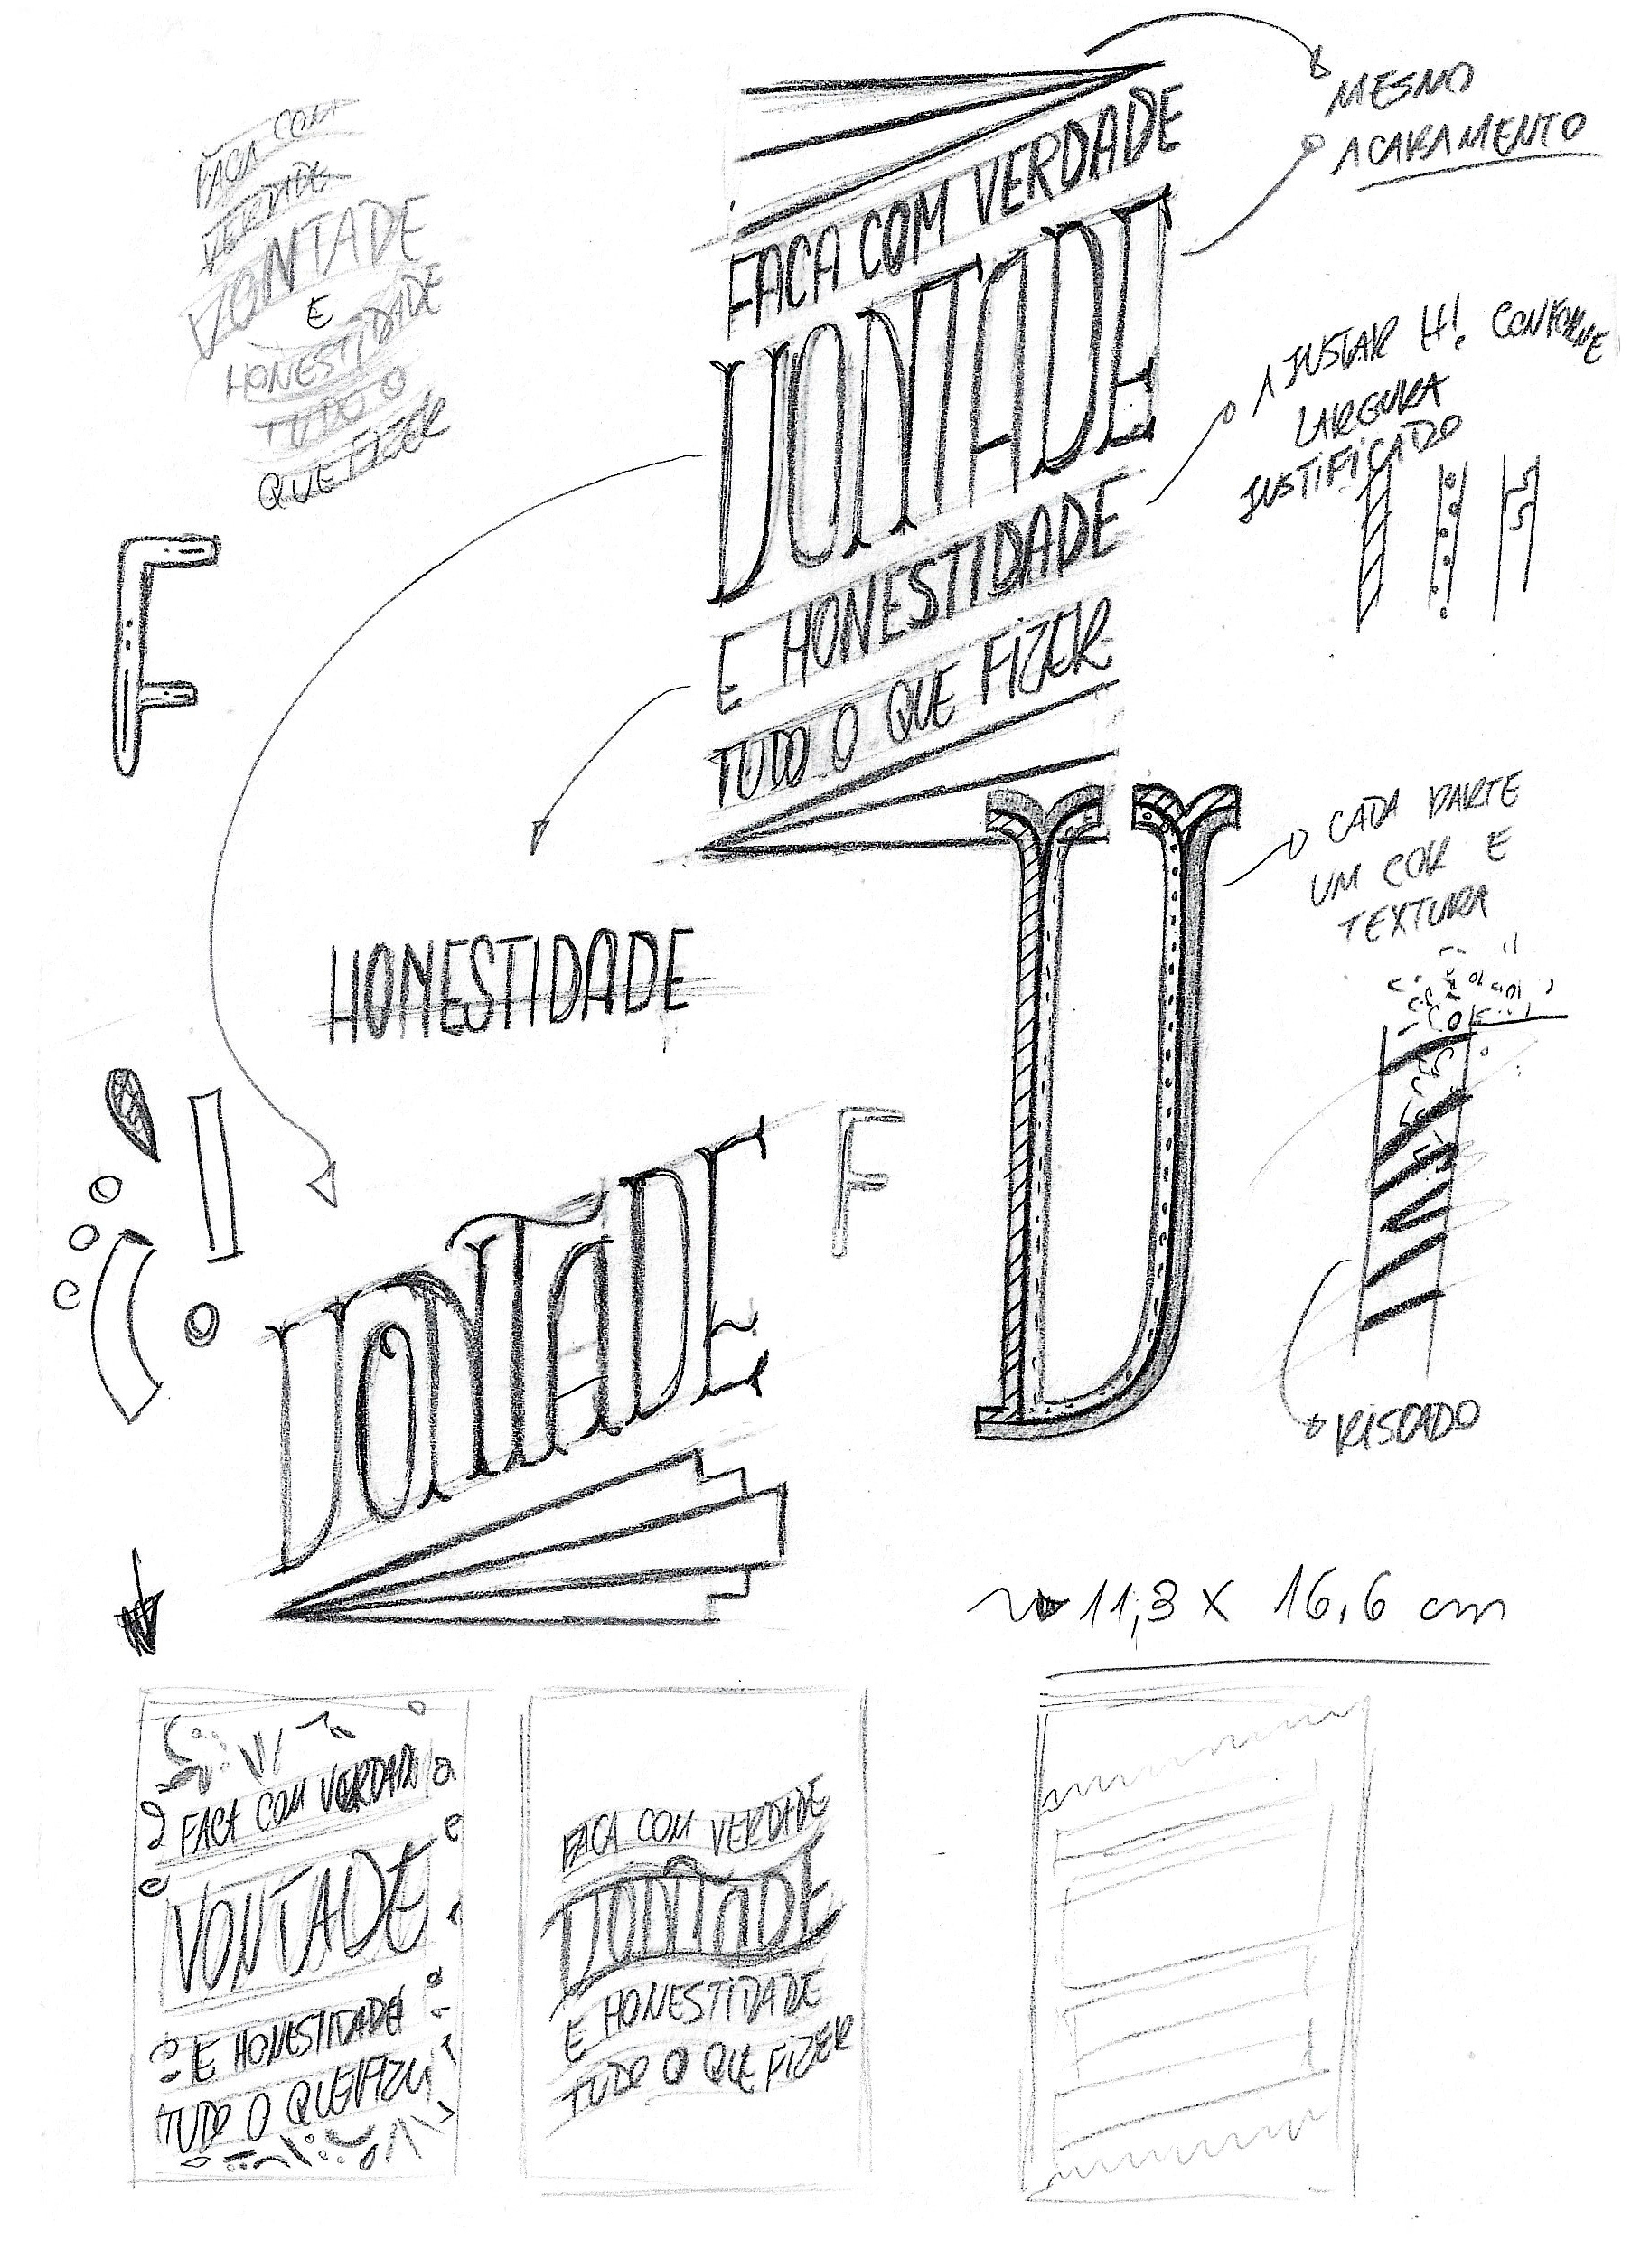 FAÇA COM
VERDADE
VONTADE
E
HONESTIDADE
TUDO O
QUE FIZER
FACA COM VERDADE
VONTADE
E HONESTIDADE
TUDO O QUE FIZER
MESMO
ACABAMENTO
AJUSTAR H! CONFORME
LARGURA
JUSTIFICADO
F
HONESTIDADE
CADA PARTE
UM COR E
TEXTURA
VONTADE
F
V
RISCADO
11,3 X 16,6 cm
FACA COM VERDADE
VONTADE
E HONESTIDADE
TUDO O QUE FIZER
FACA COM VERDADE
VONTADE
E HONESTIDADE
TUDO O QUE FIZER